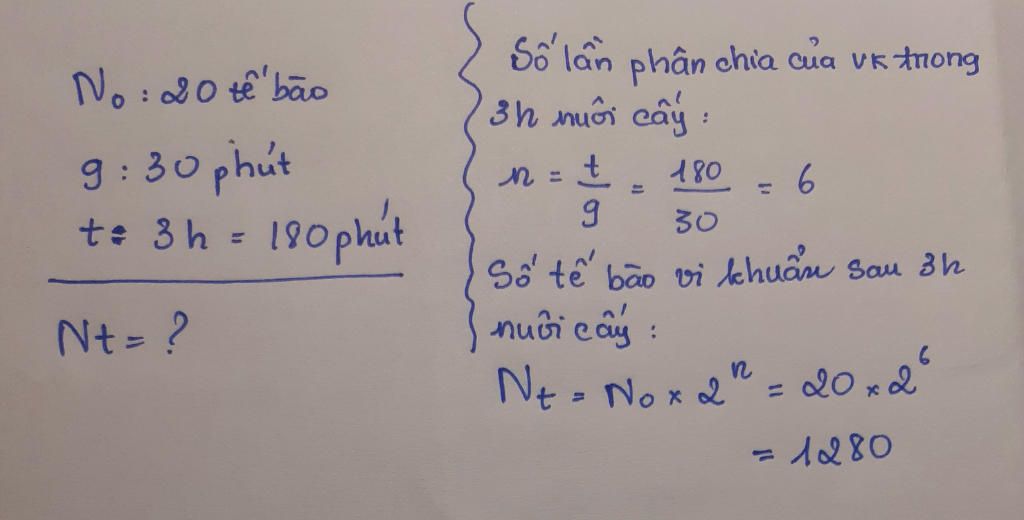 N₀ : 20 tế bào
g : 30 phút
t = 3h = 180 phút
Nt = ?
Số lần phân chia của vk trong
3h nuôi cấy :
n = t/g = 180/30 = 6
Số tế bào vi khuẩn sau 3h
nuôi cấy :
Nt = N₀ × 2ⁿ = 20 × 2⁶
= 1280